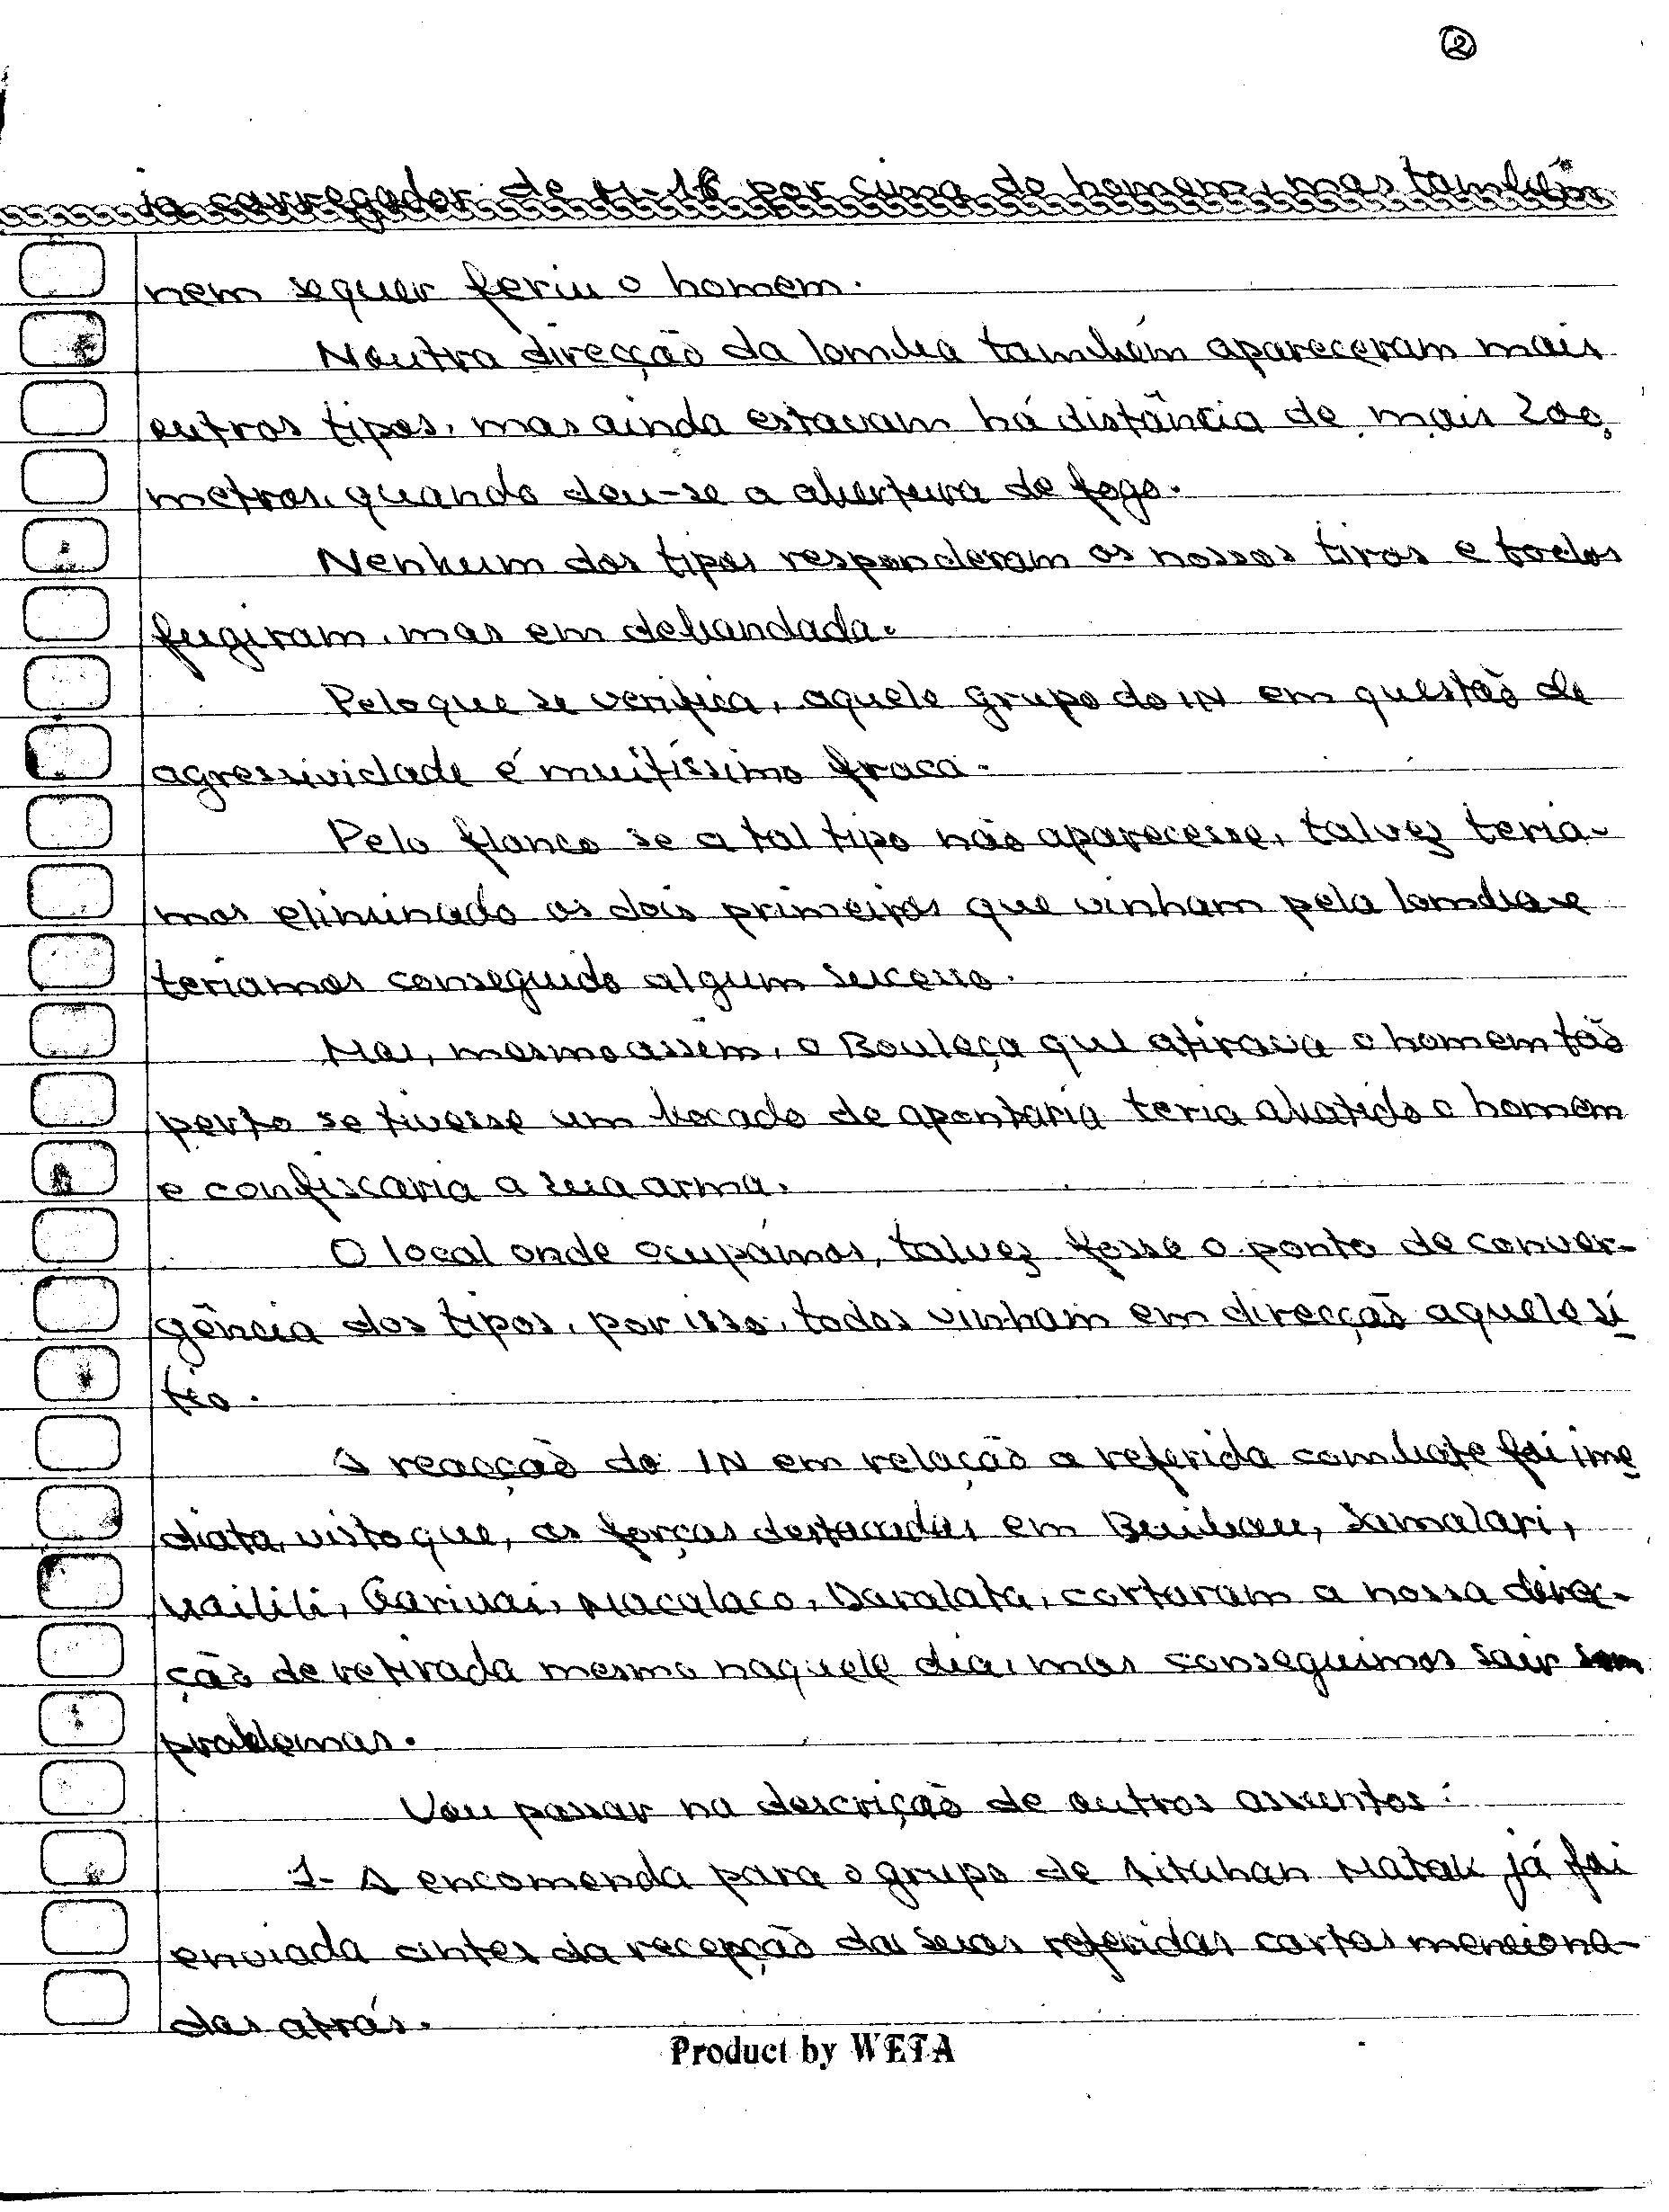 ②
io carregador de M-16 por cima do homem, mas também
nem sequer feriu o homem.
Noutra direcção da lomba também apareceram mais
outros tipos, mas ainda estavam há distância de mais 200
metros, quando deu-se a abertura de fogo.
Nenhum dos tipos responderam os nossos tiros e todos
fugiram, mas em debandada.
Pelo que se verifica, aquele grupo do IN em questão de
agressividade é muitíssimo fraca.
Pelo flanco se a tal tipo não aparecesse, talvez teria-
mos eliminado os dois primeiros que vinham pela lomba e
teriamos conseguido algum sucesso.
Mas, mesmo assim, o Bouleça que atirava o homem tão
perto se tivesse um bocado de apontaria teria abatido o homem
e confiscaria a sua arma.
O local onde ocupámos, talvez fosse o ponto de conver-
gência dos tipos, por isso, todos vinham em direcção aquele sí
tio.
A reacção do IN em relação a referida combate foi ime
diata, visto que, as forças destacadas em Buibau, Samalari,
Uailili, Gariuai, Macalaco, Daralata, cortaram a nossa direc-
ção de retirada mesmo naquele dia, mas conseguimos sair sem
problemas.
Vou passar na descrição de outros assuntos:
1- A encomenda para o grupo de Aituhan Matak já foi
enviada antes da recepção das suas referidas cartas menciona-
das atrás.
Product by WETA